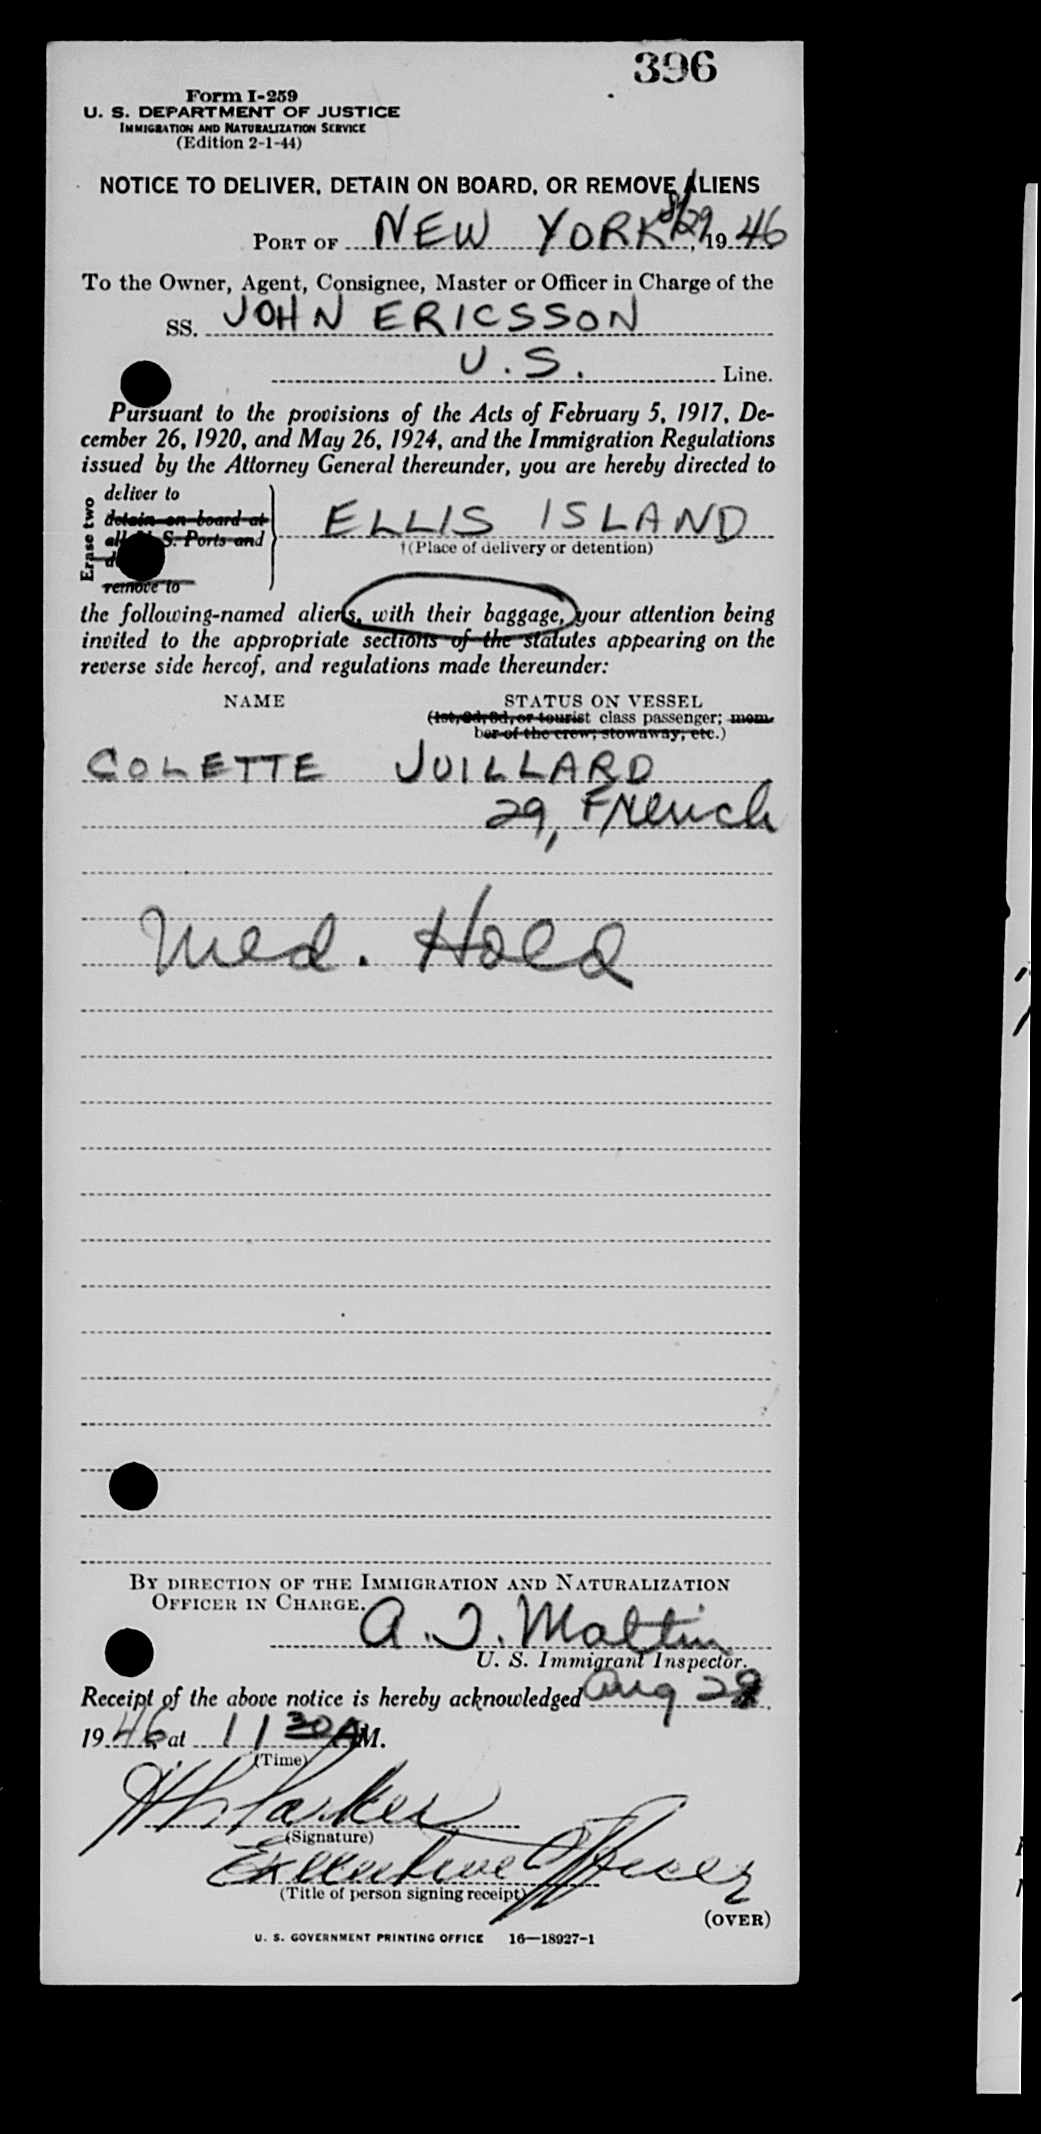 396
Form I-259
U. S. DEPARTMENT OF JUSTICE
IMMIGRATION AND NATURALIZATION SERVICE
(Edition 2-1-44)
NOTICE TO DELIVER, DETAIN ON BOARD, OR REMOVE ALIENS
PORT OF NEW YORK 8/29, 1946
To the Owner, Agent, Consignee, Master or Officer in Charge of the
SS. JOHN ERICSSON
U.S. Line.
Pursuant to the provisions of the Acts of February 5, 1917, De-
cember 26, 1920, and May 26, 1924, and the Immigration Regulations
issued by the Attorney General thereunder, you are hereby directed to
Erase two
deliver to
detain on board at
all S. Ports and
remove to
ELLIS ISLAND
†(Place of delivery or detention)
the following-named aliens, with their baggage, your attention being
invited to the appropriate sections of the statutes appearing on the
reverse side hereof, and regulations made thereunder:
NAME STATUS ON VESSEL
(1st, 2d, 3d, or tourist class passenger; mem-
ber of the crew; stowaway, etc.)
COLETTE JUILLARD
29, French
Med. Hold
BY DIRECTION OF THE IMMIGRATION AND NATURALIZATION
OFFICER IN CHARGE.
A. J. Mattin
U. S. Immigrant Inspector.
Receipt of the above notice is hereby acknowledged Aug 29,
1946 at 11 30 A M.
(Time)
Parker
(Signature)
Executive Officer
(Title of person signing receipt)
(OVER)
U. S. GOVERNMENT PRINTING OFFICE 16—18927-1